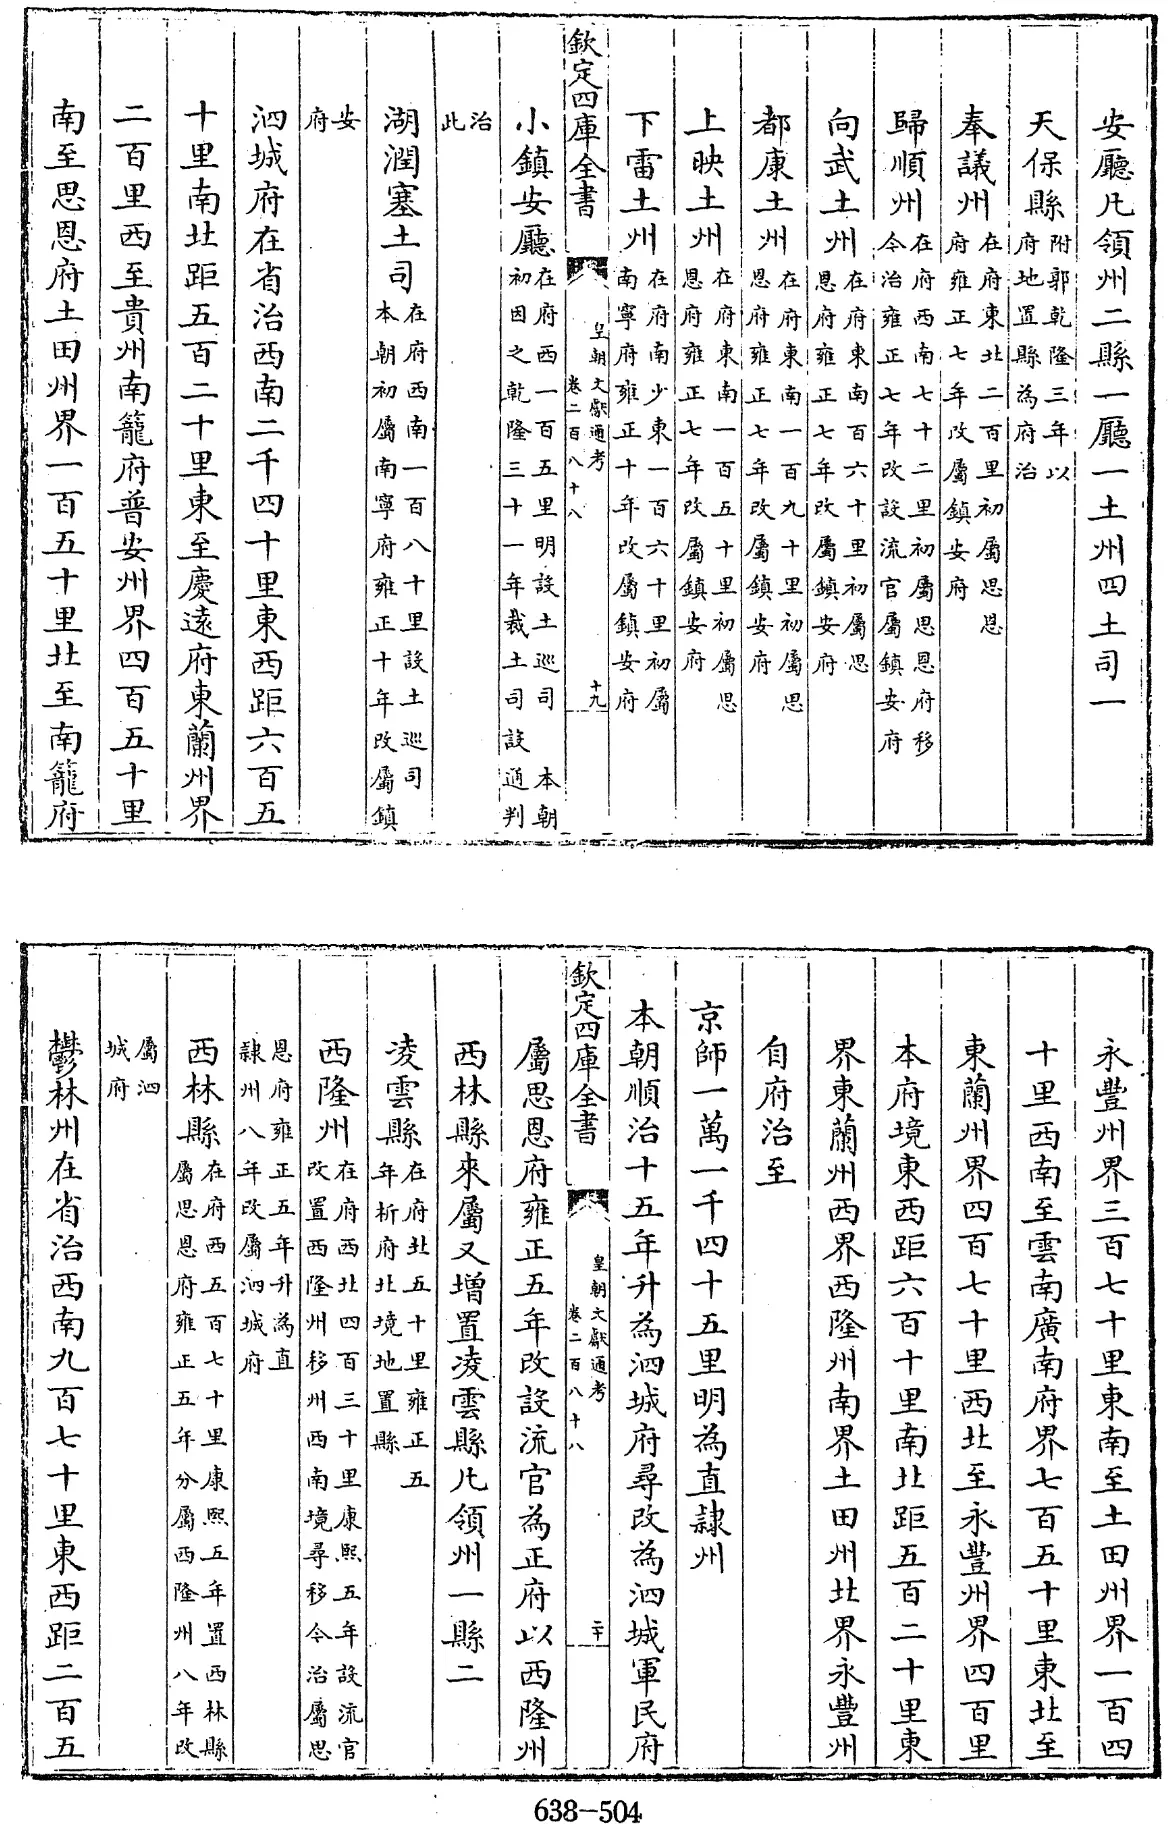 安廳凡領州二縣一廳一土州四土司一
天保縣附郭乾隆三年以
府地置縣為府治
奉議州在府東北二百里初屬思恩
府雍正七年改屬鎮安府
歸順州在府西南七十二里初屬思恩府移
今治雍正七年改設流官屬鎮安府
向武土州在府東南百六十里初屬思
恩府雍正七年改屬鎮安府
都康土州在府東南一百九十里初屬思
恩府雍正七年改屬鎮安府
上映土州在府東南一百五十里初屬思
恩府雍正七年改屬鎮安府
下雷土州在府南少東一百六十里初屬
南寧府雍正十年改屬鎮安府
欽定四庫全書
皇朝文獻通考
卷二百八十八
十九
小鎮安廳在府西一百五里明設土巡司 本朝
初因之乾隆三十一年裁土司設通判
治
此
湖潤塞土司在府西南一百八十里設土巡司
本朝初屬南寧府雍正十年改屬鎮
安
府
泗城府在省治西南二千四十里東西距六百五
十里南北距五百二十里東至慶遠府東蘭州界
二百里西至貴州南籠府普安州界四百五十里
南至思恩府土田州界一百五十里北至南籠府
永豐州界三百七十里東南至土田州界一百四
十里西南至雲南廣南府界七百五十里東北至
東蘭州界四百七十里西北至永豐州界四百里
本府境東西距六百十里南北距五百二十里東
界東蘭州西界西隆州南界土田州北界永豐州
自府治至
京師一萬一千四十五里明為直隸州
本朝順治十五年升為泗城府尋改為泗城軍民府
欽定四庫全書
皇朝文獻通考
卷二百八十八
二十
屬思恩府雍正五年改設流官為正府以西隆州
西林縣來屬又增置凌雲縣凡領州一縣二
凌雲縣在府北五十里雍正五
年析府北境地置縣
西隆州在府西北四百三十里康熙五年設流官
改置西隆州移州西南境尋移今治屬思
恩府雍正五年升為直
隸州八年改屬泗城府
西林縣在府西五百七十里康熙五年置西林縣
屬思恩府雍正五年分屬西隆州八年改
屬泗
城府
鬱林州在省治西南九百七十里東西距二百五
638-504